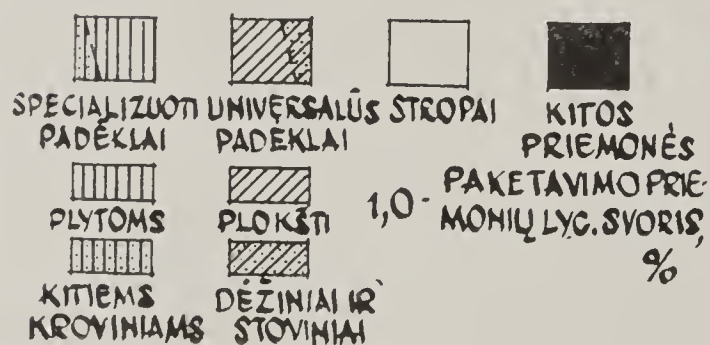 SPECIALIZUOTI PADĖKLAI
UNIVERSALŪS PADĖKLAI
STROPAI
KITOS PRIEMONĖS
PLYTOMS
PLOKŠTI
1,0 - PAKETAVIMO PRIE-
MONIŲ LYG. SVORIS,
%
KITIEMS KROVINIAMS
DĖŽINIAI IR STOVINIAI